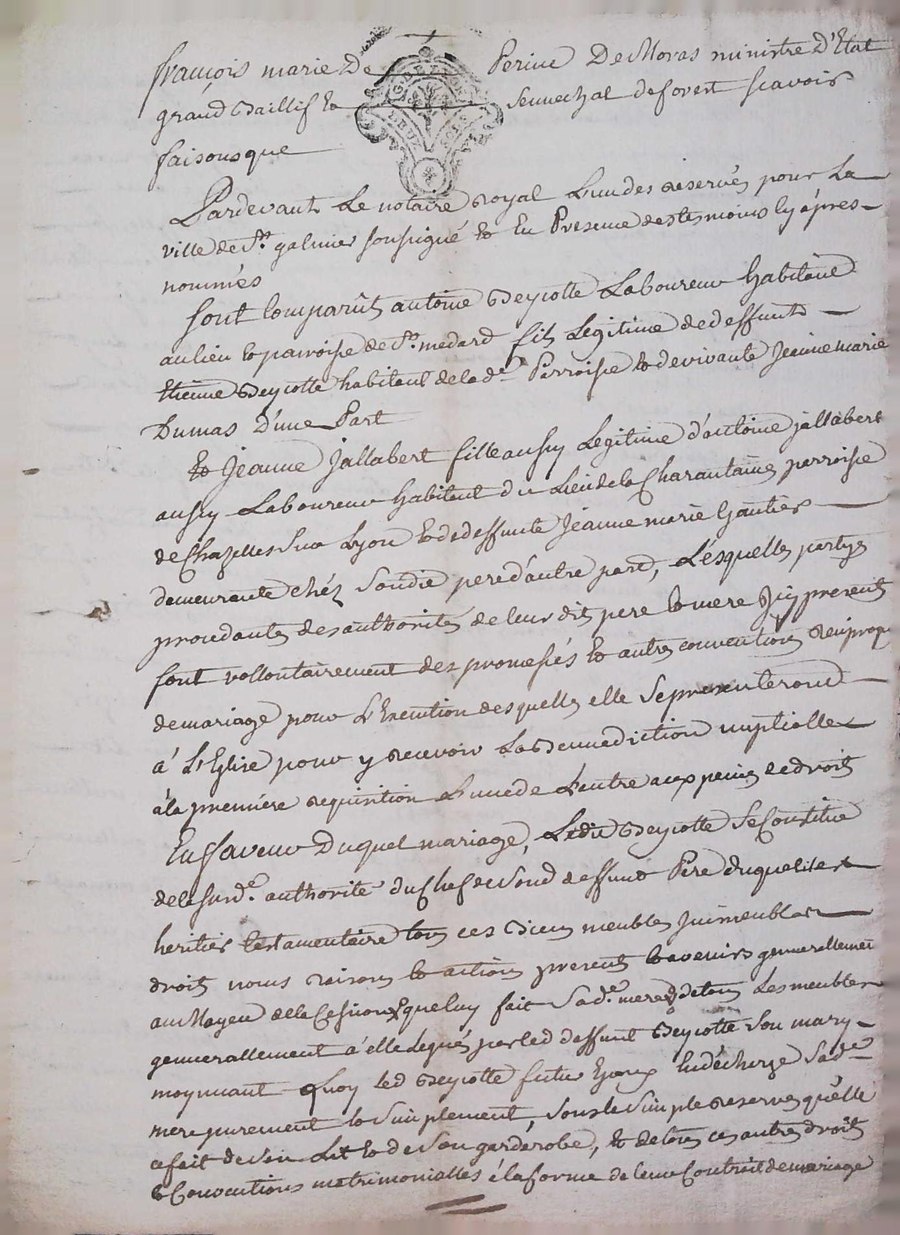 françois marie De Perine De Moras ministre d'Etat
grand Baillif & senechal deforest scavoir
faisons que
Pardevant Le notaire royal L'un des réservés pour La
ville de St. galmier soussigné & En Presence des tesmoins cy áprés
nommés
sont Comparûs antoine Beyrotte Laboureur habitant
au lieu & parroisse de St. medard fils Légitime de deffunt
Etienne Beyrotte habitant de la de. Parroisse & de vivante Jeanne marie
Dumas D'une Part
& Jeanne Jallabert fille aussy Légitime d'antoine jallabert
aussy Laboureur habitant du Lieu de la Charantaine parroisse
de Chazelles sur Lyon & de deffunte Jeanne marie Gautier
demeurante chéz Sondit pere d'autre part, Lésquelles partyes
procedantes des authorités de leur dit pere & mere Icy present
font vollontairement des promesses & autres conventions reciproq
de mariage pour L'Execution desquelles elle se presenteront
á L'Eglise pour y recevoir La Bennediction nuptialle
á la premiére requisition L'une de L'autre aux peines de droit
En faveur Duquel mariage, Ledit Beyrotte se Constitue
de la sude. authorité du Chef de Sond deffunt Pere duquel il est
heritier testamentaire tous ces Biens meubles Immeubles
droit noms raisons & actions present & avenirs generallement
au Moyen de la Cession que luy fait Sade. mere de tous Les meubles
generallement á elle Légués par led deffunt Beyrotte son mary
moyennant Quoy led Beyrotte futur Epoux En décharge Sade.
mere purement & simplement, sous le simple reserves qu'elle
ce fait de son Lit & de son garderobe, & de tous ces autres droits
& Conventions matrimonialles á la forme de leur Contrait de mariage